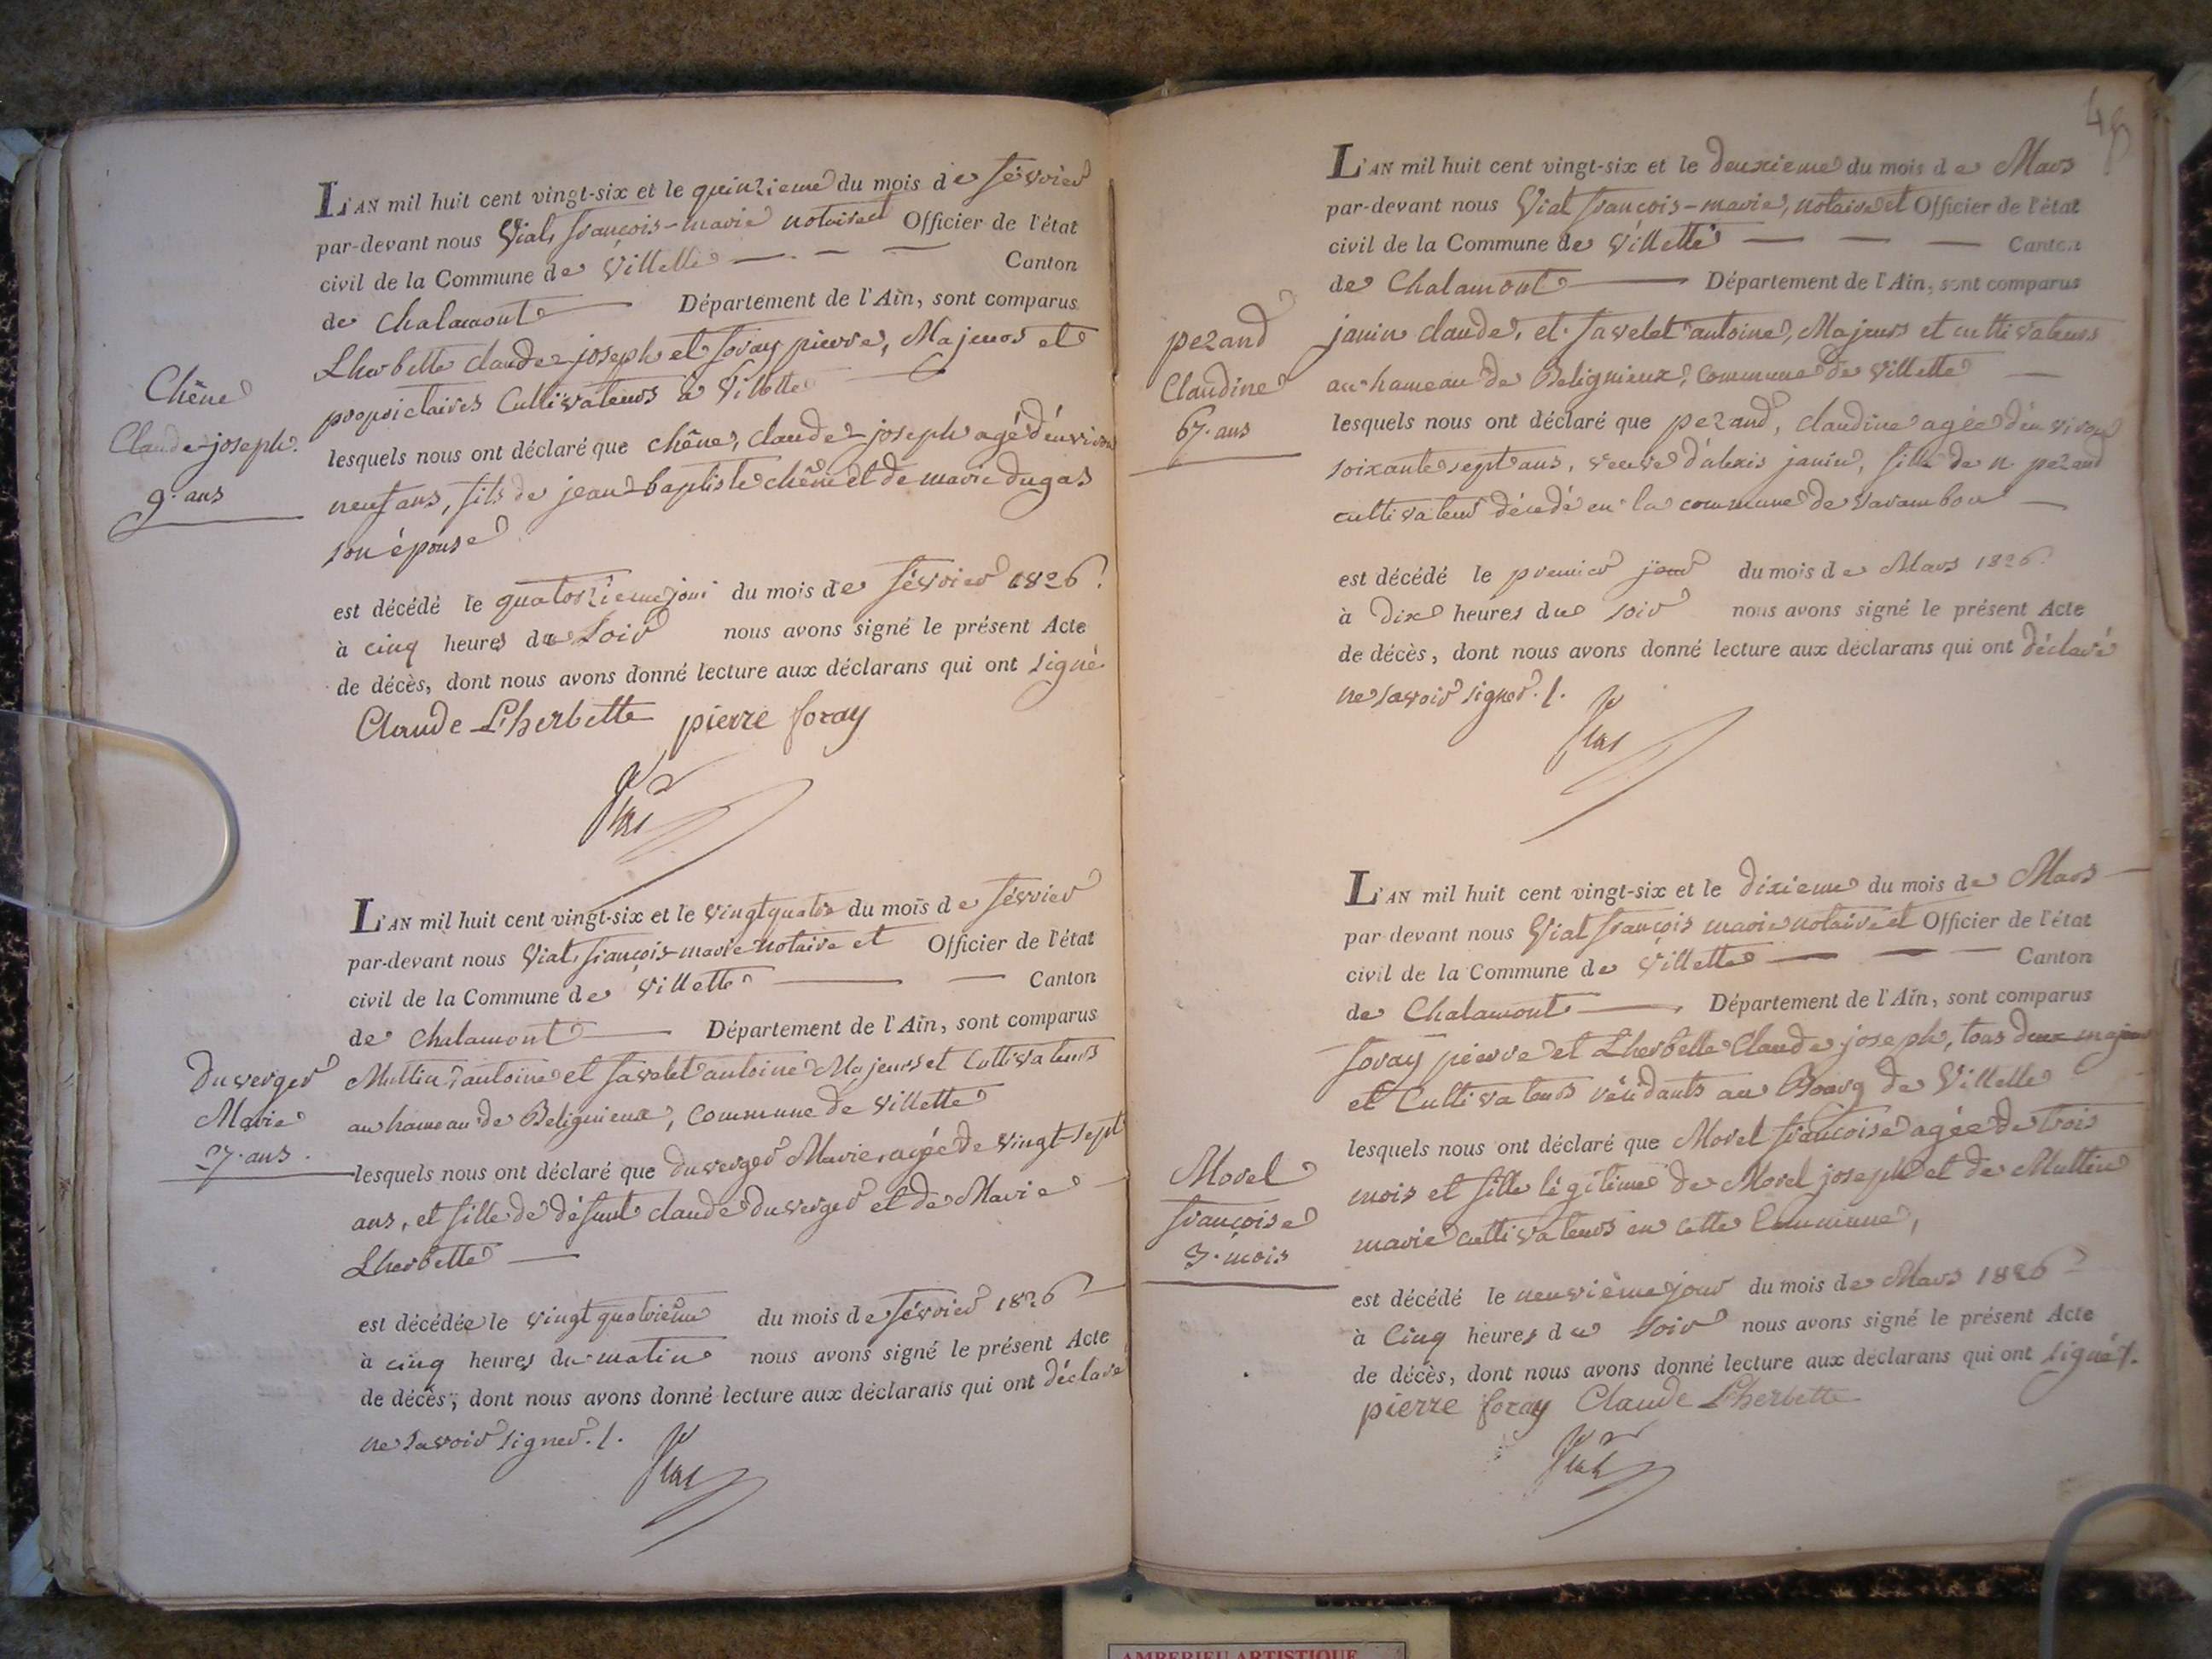 L'AN mil huit cent vingt-six et le quinzieme du mois de fevrier
par-devant nous Vial, françois-marie notaire et Officier de l'état
civil de la Commune de Villette Canton
de Chalamont Département de l'Ain, sont comparus
Lherbette claude-joseph et foray pierre, Majeurs et
propriétaires Cultivateurs à Villette
lesquels nous ont déclaré que chêne, claude-joseph agé d'environ
neuf ans, fils de jean-baptiste chêne et de marie dugas
son épouse
est décédé le quatorzieme jour du mois de février 1826.
à cinq heures du Soir nous avons signé le présent Acte
de décès, dont nous avons donné lecture aux déclarans qui ont signé
Claude Lherbette pierre foray
Vial
Chêne
Claude-joseph.
9. ans
L'AN mil huit cent vingt-six et le vingt quatre du mois de février
par-devant nous Vial, françois-marie notaire et Officier de l'état
civil de la Commune de Villette Canton
de Chalamont Département de l'Ain, sont comparus
Multin antoine et favelet antoine Majeurs et Cultivateurs
au hameau de Beligneux, commune de Villette
lesquels nous ont déclaré que duverger Marie, agée de vingt-sept
ans, et fille de défunt claude duverger et de Marie
Lherbette
est décédée le vingt quatrieme du mois de février 1826
à cinq heures du matin nous avons signé le présent Acte
de décès, dont nous avons donné lecture aux déclarans qui ont déclaré
ne savoir signer. /.
Vial
Duverger
Marie
27. ans.
48
L'AN mil huit cent vingt-six et le deuxieme du mois de Mars
par-devant nous Vial françois-marie, notaire et Officier de l'état
civil de la Commune de Villette Canton
de Chalamont Département de l'Ain, sont comparus
janin claude, et favelet antoine, Majeurs et cultivateurs
au hameau de Beligneux, commune de Villette
lesquels nous ont déclaré que pezand, claudine agée d'environ
soixante sept ans, veuve d'alexis janin, fille de n. pezand
cultivateur décédé en la commune de Varambon
est décédé le premier jour du mois de Mars 1826
à dix heures du soir nous avons signé le présent Acte
de décès, dont nous avons donné lecture aux déclarans qui ont déclaré
ne savoir signer. /.
Vial
pezand
Claudine
67. ans
L'AN mil huit cent vingt-six et le dixieme du mois de Mars
par-devant nous Vial françois marie notaire et Officier de l'état
civil de la Commune de Villette Canton
de Chalamont Département de l'Ain, sont comparus
foray pierre et Lherbette Claude joseph, tous deux majeurs
et Cultivateurs résidants au Bourg de Villette
lesquels nous ont déclaré que Morel françoise agée de trois
mois et fille légitime de Morel joseph et de Multin
marie cultivateurs en cette Commune,
est décédé le neuvième jour du mois de Mars 1826
à Cinq heures du soir nous avons signé le présent Acte
de décès, dont nous avons donné lecture aux déclarans qui ont signé /.
pierre foray Claude Lherbette
Vial
Morel
françoise
3. mois
AMBERIEU ARTISTIQUE